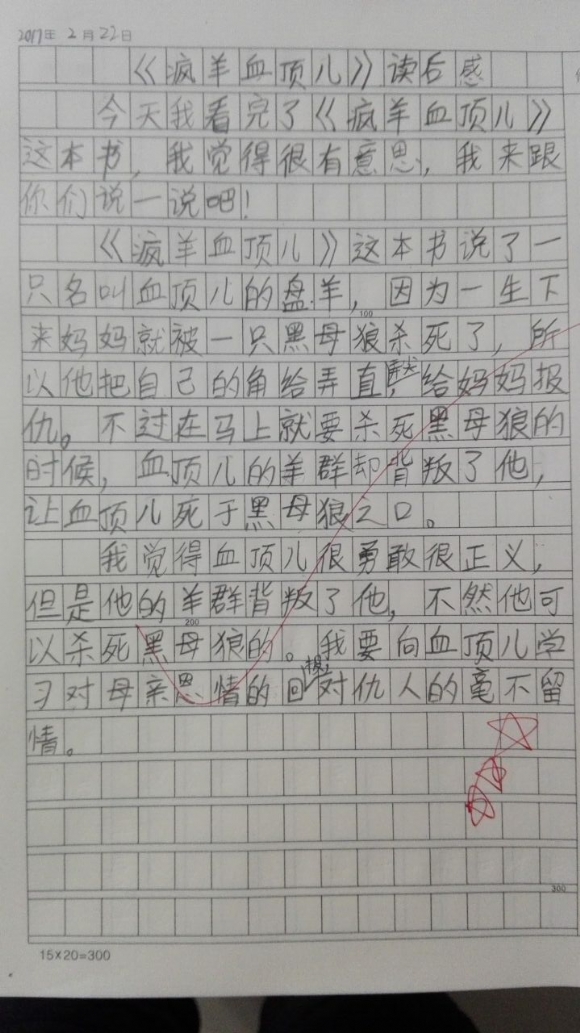 2017年2月22日
《疯羊血顶儿》读后感
今天我看完了《疯羊血顶儿》
这本书，我觉得很有意思，我来跟
你们说一说吧！
《疯羊血顶儿》这本书说了一
只名叫血顶儿的盘羊，因为一生下
100
来妈妈就被一只黑母狼杀死了，所
以他把自己的角给弄直，给妈妈报
仇。不过在马上就要杀死黑母狼的
时候，血顶儿的羊群却背叛了他，
让血顶儿死于黑母狼之口。
我觉得血顶儿很勇敢很正义，
但是他的羊群背叛了他，不然他可
200
以杀死黑母狼的。我要向血顶儿学
习对母亲思情的回报，对仇人的毫不留
情。
300
15×20=300